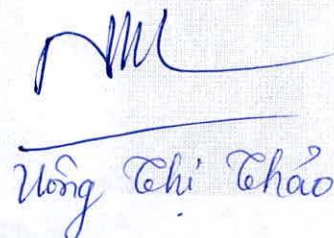 Uông Thị Thảo